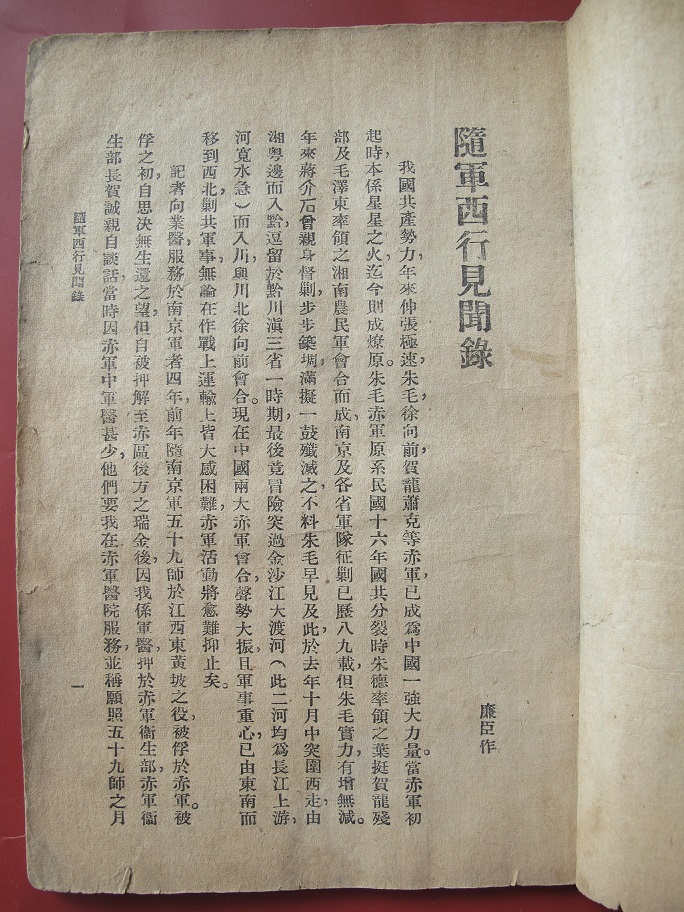 隨軍西行見聞錄
廉臣作
我國共產勢力，年來伸張極速，朱毛，徐向前，賀龍蕭克等赤軍，已成爲中國一強大力量。當赤軍初
起時，本係星星之火，迄今則成燎原。朱毛赤軍原系民國十六年國共分裂時朱德率領之葉挺賀龍殘
部及毛澤東率領之湘南農民軍會合而成，南京及各省軍隊征剿已歷八九載，但朱毛實力，有增無減。
年來蔣介石曾親身督剿，步步築堋，滿擬一鼓殲滅之，不料朱毛早見及此，於去年十月中突圍西走，由
湘粵邊而入黔，逗留於黔川滇三省一時期，最後竟冒險突過金沙江大渡河（此二河均爲長江上游，
河寬水急）而入川，與川北徐向前會合。現在中國兩大赤軍會合，聲勢大振，且軍事重心，已由東南而
移到西北，剿共軍事，無論在作戰上運輸上皆大感困難，赤軍活動將愈難抑止矣。
記者向業醫，服務於南京軍者四年，前年隨南京軍五十九師於江西東黃坡之役，被俘於赤軍。被
俘之初，自思決無生還之望，但自被押解至赤區後方之瑞金後，因我係軍醫，押於赤軍衞生部，赤軍衞
生部長賀誠親自談話，當時因赤軍中軍醫甚少，他們要我在赤軍醫院服務，並稱願照五十九師之月
隨軍西行見聞錄
一